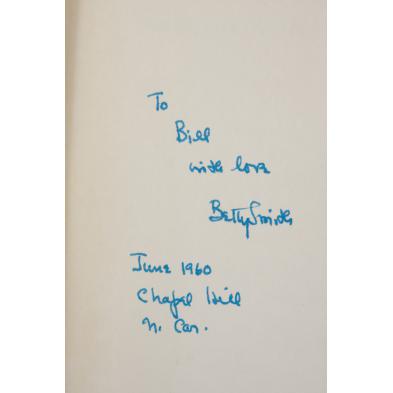 To
Bill
with love
Betty Smith
June 1960
Chapel Hill
N. Car.